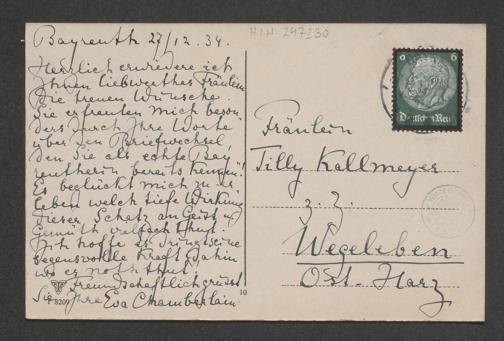 Bayreuth 27/12.34.
Herzlich erwiedere ich
Ihnen liebwerthes Fräulein
die treuen Wünsche.
Sie erfreuten mich beson-
ders durch Ihre Worte
über den Briefwechsel,
den Sie als echte Bay-
reutherin bereits kennen!
Es beglückt mich zu er-
leben welch tiefe Wirkung
dieser Schatz an Geist u
Gemüth vielfach thut.
Ich hoffe er dringe seine
segensvolle Kraft dahin
wo es noth thut!
Freundschaftlich grüsst
Sie Ihre Eva Chamberlain.
8209
10
H.I.N. 247230
6 6
Deutsches Reich
Fräulein
Tilly Kallmeyer
z. Z.
Wegeleben
Ost-Harz